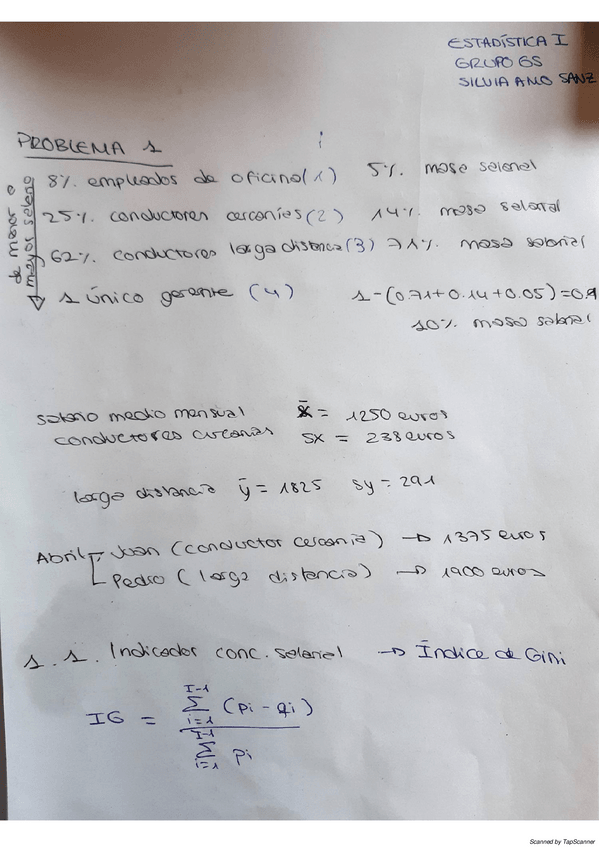 ESTADÍSTICA I
GRUPO GS
SILVIA AMO SANZ
PROBLEMA 1
de menor a mayor salario
8% empleados de oficina (1) 5% masa salarial
25% conductores cercanías (2) 14% masa salarial
62% conductores larga distancia (3) 71% masa salarial
1 único gerente (4) 1-(0.71+0.14+0.05)=0.1
10% masa salarial
salario medio mensual x̄ = 1250 euros
conductores cercanías sx = 238 euros
larga distancia ȳ = 1825 sy = 291
Abril Juan (conductor cercanía) → 1375 euros
Pedro (larga distancia) → 1900 euros
1.1. Indicador conc. salarial → Índice de Gini
IG = \frac{\sum_{i=1}^{I-1} (pi - qi)}{\sum_{i=1}^{I-1} pi}
Scanned by TapScanner